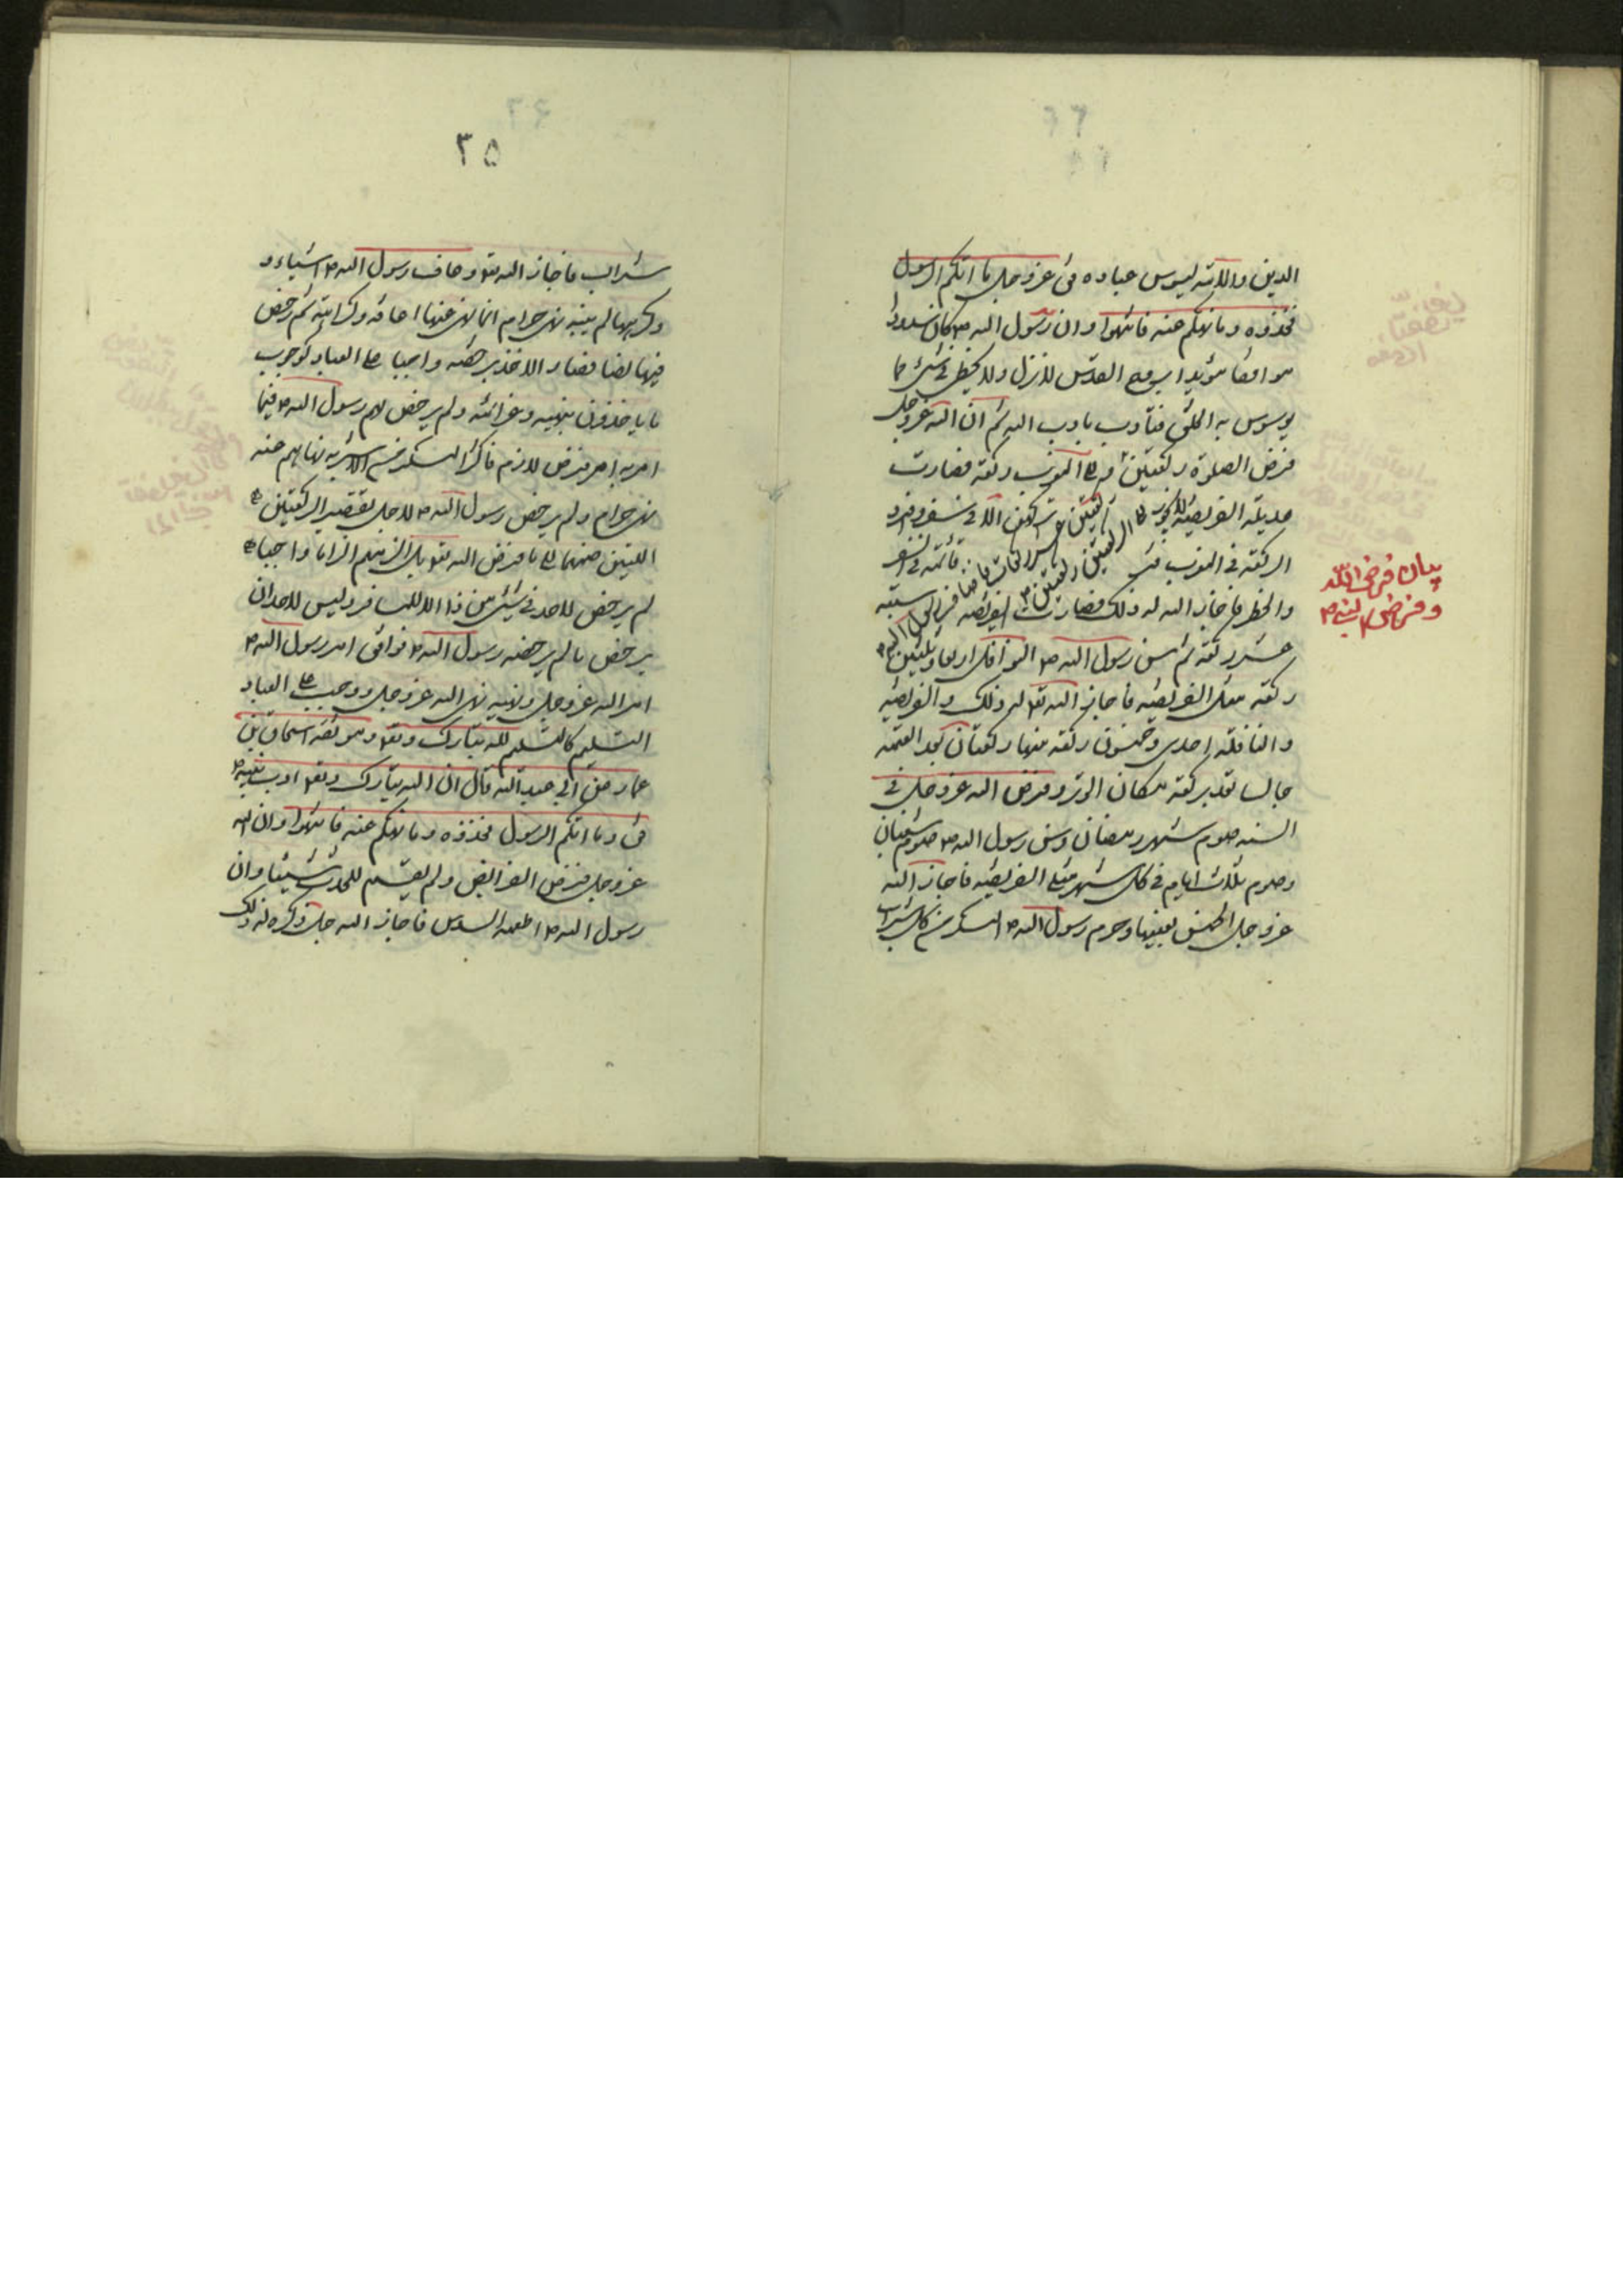 الدين والامة ليسوس عباده فق عزوجل ما اتكم الرسول
فخذوه وما نهكم عنه فانتهوا وان رسول الله ص كان مسددا
موافقا مؤيدا بروح القدس لا يزل ولا يخطى فى شئ مما
يسوس به الخلق فتأدب باداب الله ثم ان الله عزوجل
فرض الصلوة ركعتين ركعة فصارت
عديلة الفريضة لا يجوز تركهن الا فى سفر وافرد
الركعة فى المغرب قائمة فى السفر
والحضر فاجاز الله له ذلك فصارت الفريضة سبعة
عشر ركعة ثم سن رسول الله ص النوافل اربعا وثلثين
ركعة مثلى الفريضة فاجاز الله تع له ذلك والفريضة
والنافلة احدى وخمسون ركعة منها ركعتان بعد العتمة
جالسا تعد بركعة مكان الوتر وفرض الله عزوجل فى
السنة صوم شهر رمضان وسن رسول الله ص صوم شعبان
وصوم ثلاث ايام فى كل شهر مثلى الفريضة فاجاز الله
عزوجل الخمر بعينها وحرم رسول الله ص المسكر من كل شراب
بيان فرض الله
وفرض النبى ص
٣٥
شراب فاجاز الله تع وعاف رسول الله ص اشياء و
وكرهها لم ينه نهى حرام انما نهى عنها اعافة وكراهة ثم رخص
فيها فصار الاخذ برخصه واجبا على العباد كوجوب
ما ياخذون بنهيه وعزائمه ولم يرخص لهم رسول الله ص فيما
امر به امر فرض لازم فاكثر المسكر من الاشربة نهاهم عنه
نهى حرام ولم يرخص رسول الله ص لاحد تقصير الركعتين
اللتين ضمهما الى ما فرض الله تع بل الزمهم الزاما واجبا
لم يرخص لاحد فى شئ من ذا الا للمسافر وليس لاحد ان
يرخص ما لم يرخصه رسول الله ص فوافق امر رسول الله ص
امر الله عزوجل ونهيه نهى الله عزوجل ووجب على العباد
التسليم كالتسليم لله تبارك وتع وموثقة اسحاق بن
عمار عن ابى عبد الله قال ان الله تبارك وتع ادب نبيه ص
فق وما اتكم الرسول فخذوه وما نهكم عنه فانتهوا وان الله
عزوجل فرض الفرائض ولم يقسم للجد شيئا وان
رسول الله ص اطعمه السدس فاجاز الله جل ذكره له ذلك